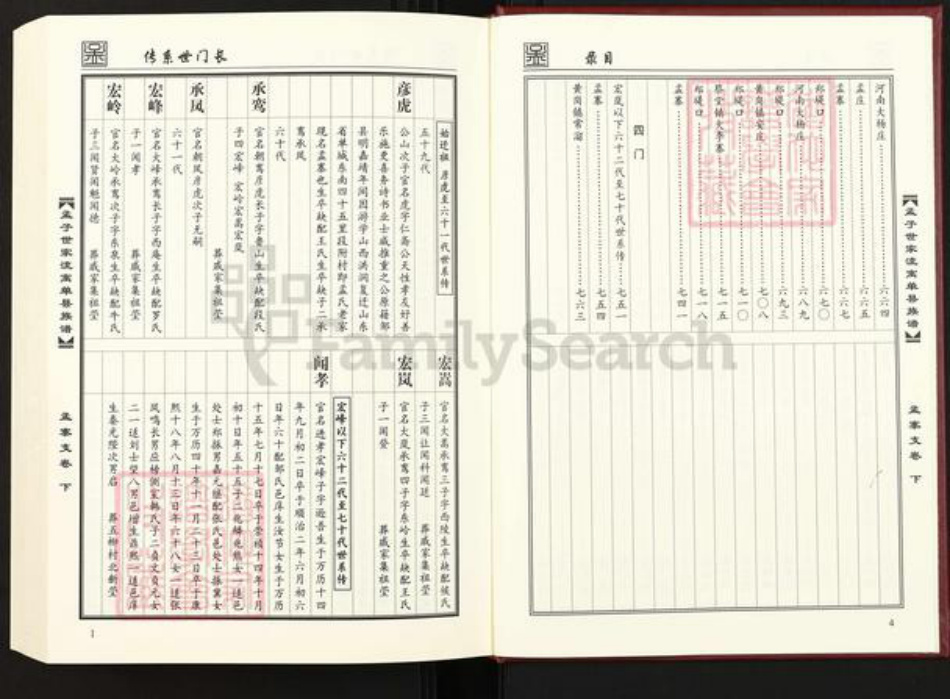 目录
河南大杨庄……六六四
孟庄……六六五
孟寨……六六七
郑堤口……六七〇
河南大杨庄……六八九
郑堤口……六九三
黄岗镇安庄……七〇八
郑堤口……七一〇
蔡堂镇大李寨……七一五
郑堤口……七一八
孟寨……七四一
四门
宏岚以下六十二代至七十代世系传……七五一
孟寨……七五四
黄岗镇常溜……七六三
孟子世家流寓单县族谱
孟寨支卷 下
4
长门世系传
始迁祖 彦虎至六十一代世系传
五十九代
彦虎
公山次子官名虎字仁斋公天性孝友好善
乐施更喜务诗书业士咸推重之公原籍邹
县明嘉靖年间因游学山西洪洞复迁山东
省单城东南四十五里段附村即孟氏老家
现名孟寨也生卒缺配王氏生卒缺子二承
鸾承凤
六十代
承鸾
官名朝鸾彦虎长子字鲁山生卒缺配段氏
子四宏峰 宏岭宏嵩宏岚
葬戚家集祖茔
承凤
官名朝凤彦虎次子无嗣
六十一代
宏峰
官名大峰承鸾长子字西庵生卒缺配罗氏
子一闻孝 葬戚家集祖茔
宏岭
官名大岭承鸾次子字东泉生卒缺配牛氏
子三闻贤闻魁闻德 葬戚家集祖茔
宏嵩
官名大嵩承鸾三子字西陵生卒缺配侯氏
子三闻让闻科闻廷 葬戚家集祖茔
宏岚
官名大岚承鸾四子字东岭生卒缺配王氏
子一闻登 葬戚家集祖茔
宏峰以下六十二代至七十代世系传
闻孝
官名进孝宏峰子字逊吾生于万历十四
年九月初二日卒于顺治二年六月初六
日年六十配邹氏邑庠生汝节女生于万历
十五年七月十七日卒于崇祯十四年十月
初十日年五十五子二兆麟兆熊女一适邑
处士郑振男嘉元继配张氏邑处士振冀女
生于万历四十年十一月二十三日卒于康
熙十八年八月十三日年六十八女一适张
凤鸣长男应椿侧室韩氏子二贞文贞元女
二一适刘士望八男邑增生鼎熙一适邑庠
生秦光隆次男启 葬五柳村北新茔
孟子世家流寓单县族谱
孟寨支卷 下
1
FamilySearch